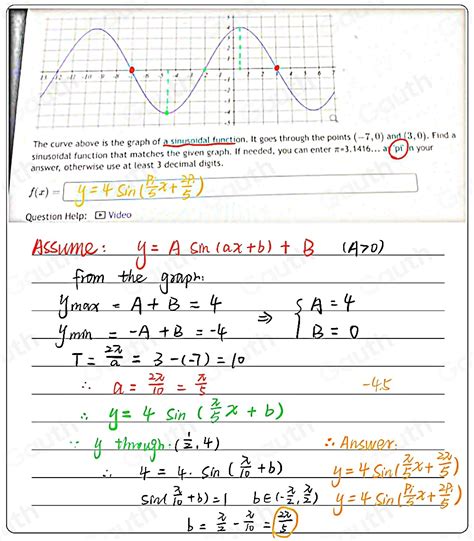 The curve above is the graph of a sinusoidal function. It goes through the points (−7, 0) and (3, 0). Find a
sinusoidal function that matches the given graph. If needed, you can enter π=3.1416... as 'pi' in your
answer, otherwise use at least 3 decimal digits.
f(x) = y = 4 sin(Pi/5 x + 2Pi/5)
Question Help: Video
Assume: y = A sin(ax+b) + B (A>0)
from the graph:
ymax = A + B = 4
ymin = -A + B = -4 ⇒ { A = 4 B = 0
T = 2π/a = 3-(-7) = 10
∴ a = 2π/10 = π/5 -4.5
∴ y = 4 sin (π/5 x + b)
∵ y through: (1/2, 4) ∴ Answer:
∴ 4 = 4· sin(π/10 + b) y = 4 sin(π/5 x + 2π/5)
sin(π/10 + b) = 1 b∈(-π/2, π/2) y = 4 sin(Pi/5 x + 2Pi/5)
b = π/2 - π/10 = 2π/5
Gauth